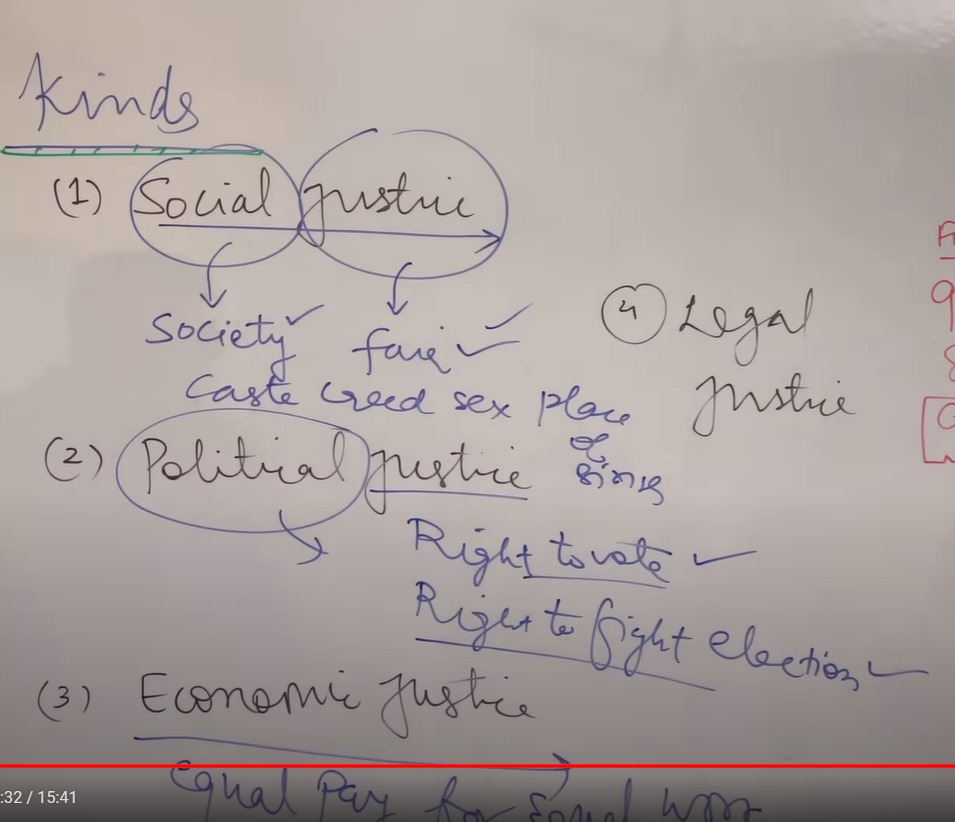 Kinds
(1) Social Justice
Society fair
Caste creed sex place
of
birth
(2) Political Justice
Right to vote
Right to fight election
(3) Economic Justice
Equal Pay for Equal work
④ Legal
Justice
:32 / 15:41